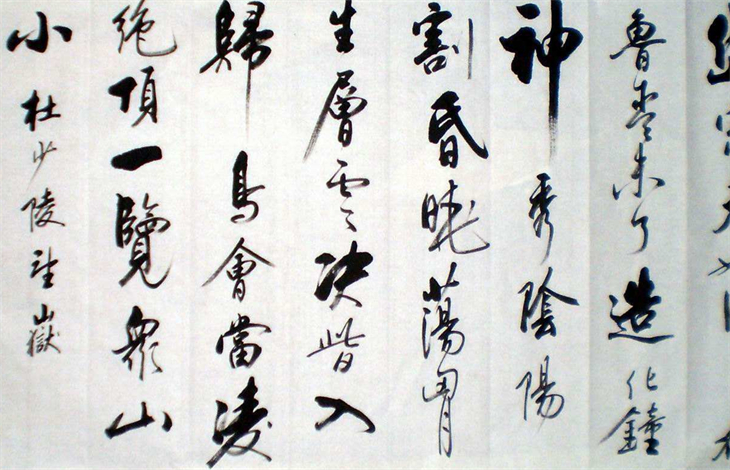 魯青未了造化鐘
神秀陰陽
割昏曉蕩胸
生層雲决眥入
歸鳥會當凌
絶頂一覽衆山
小杜少陵望嶽